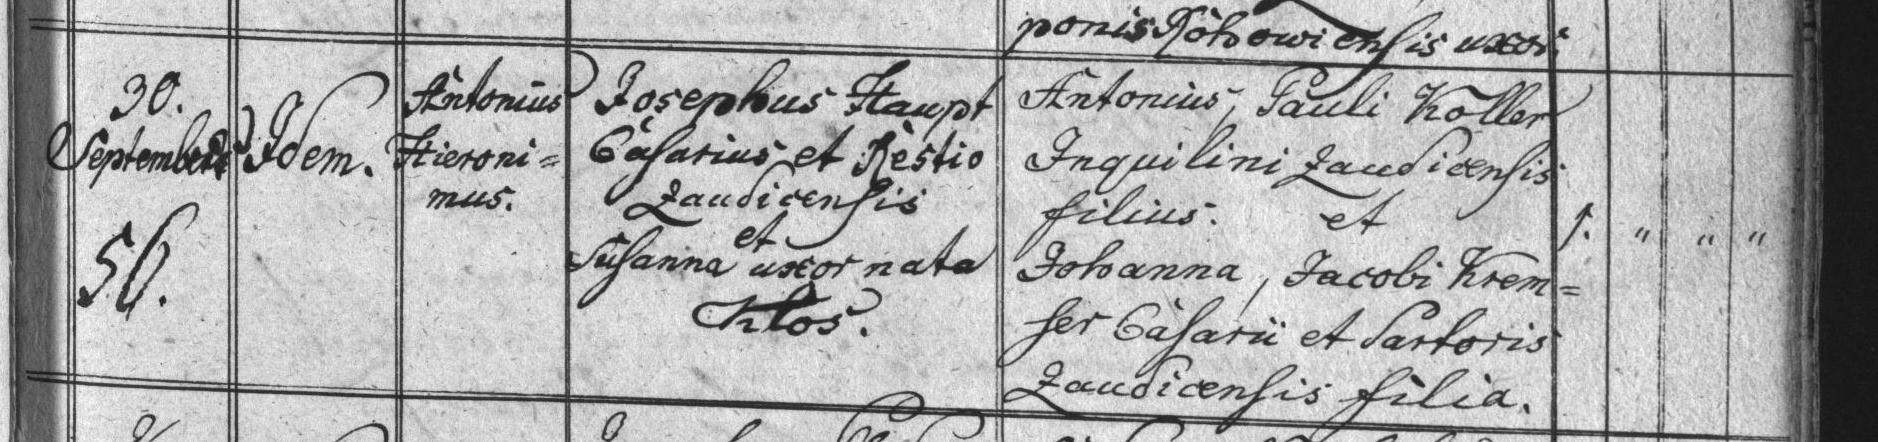 ponis Kohowiensis uxor.
30.
Septembris
56.
Idem.
Antonius
Hieroni=
mus.
Josephus Haupt
Casarius et Restio
Zaudicensis
et
Susanna uxor nata
Klos.
Antonius, Pauli Koller
Inquilini Zaudicensis
filius. et
Johanna, Jacobi Krem=
ser Casarii et Sartoris
Zaudicensis filia.
1. " " "